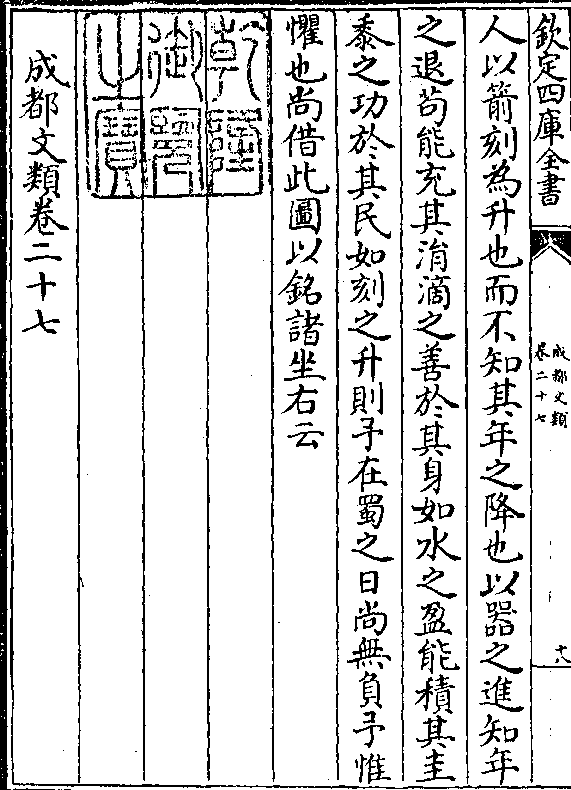 欽定四庫全書
成都文類
卷二十七
十八
人以箭刻為升也而不知其年之降也以器之進知年
之退茍能充其涓滴之善於其身如水之盈能積其圭
黍之功於其民如刻之升則予在蜀之日尚無負予惟
懼也尚借此圖以銘諸坐右云
乾隆
御覽
之寶
成都文類卷二十七